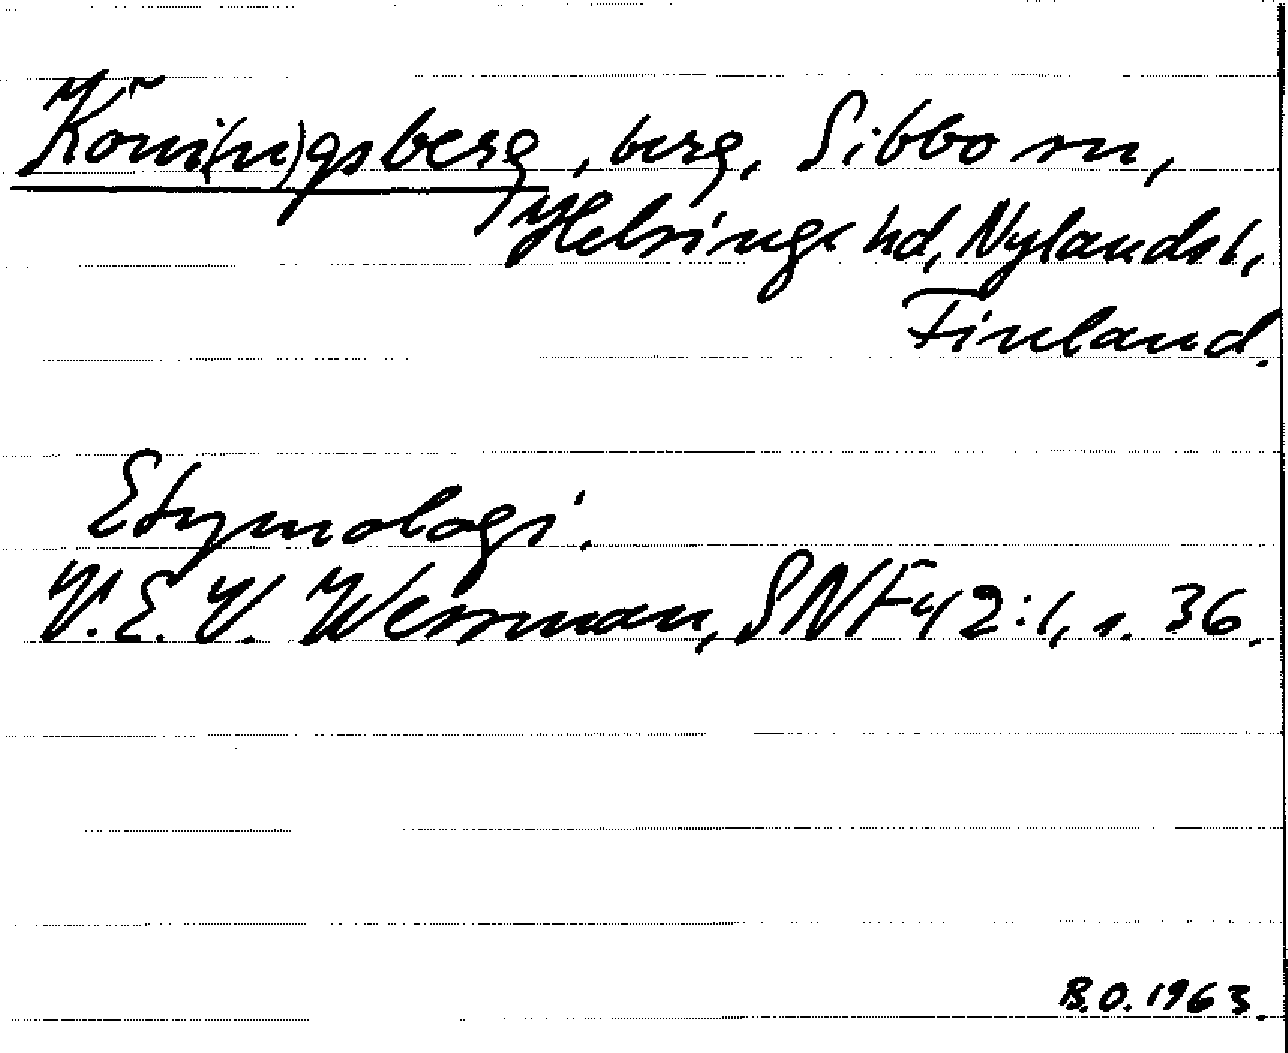 Köni(n)gsberg, berg, Sibbo sn,
Helsinge hd, Nylands l,
Finland.
Etymologi.
V. E. V. Wessman, SNF 42:1, s. 36.
B.O. 1963.